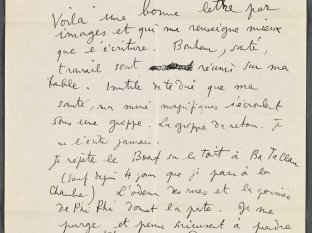 Voilà une bonne lettre par
images et qui me renseigne mieux
que l'écriture. Bonheur, santé,
travail sont réunis sur ma
table. Inutile de te dire que ma
santé, ma mine magnifiques s'écroulent
sous une grippe. La grippe du retour. Je
ne l'évite jamais.
Je rejette le Boeuf sur le toit à
(sauf depuis 4 jours que je garde la
Chambre) L'odeur des rues et la
de Phi Phi donnent la peste. Je me
purge et pense à perdre